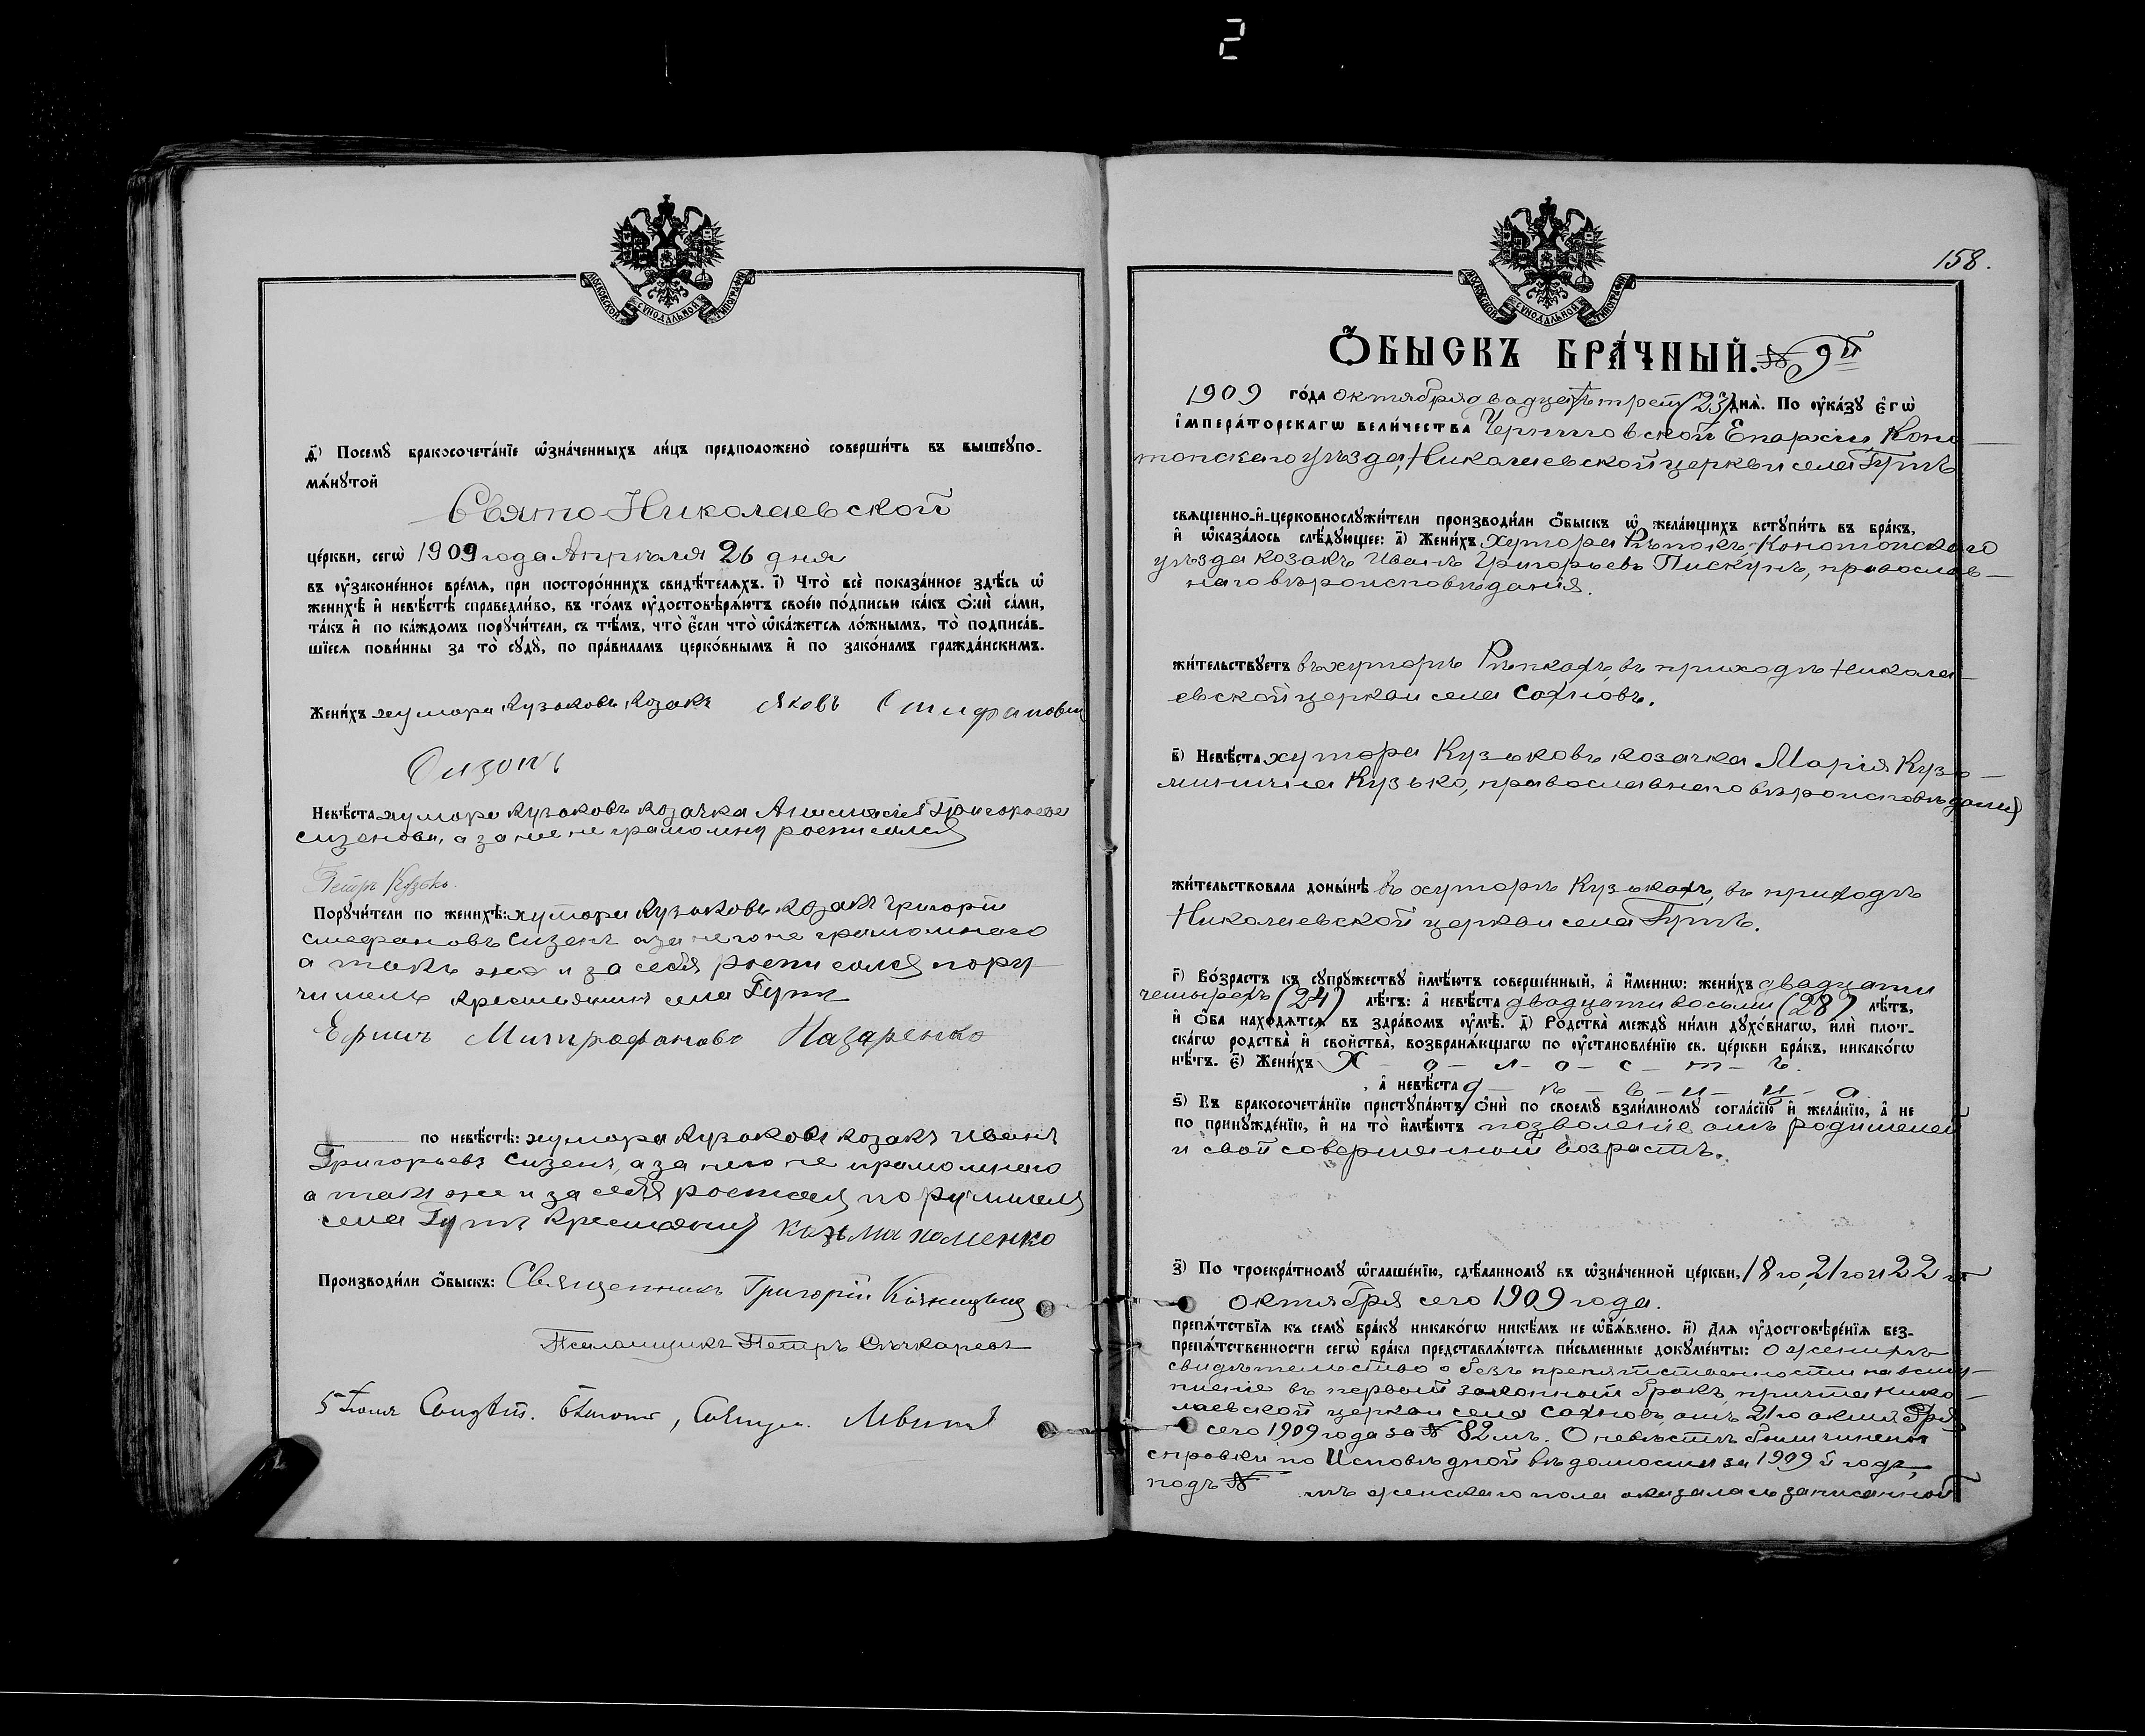 2
МОСКОВСКОЙ СѴНОДАЛЬНОЙ ТИПОГРАФІИ
д҃і) Посемꙋ̀ бракосочета́нїе ѡ҆зна́ченныхъ ли́цъ предположено̀ соверши́ть въ вышеꙋпо-
мѧ́нꙋтой
Свято-Николаевской
це́ркви, сегѡ̀ 1909 года Апрѣля 26 дня
въ ᲂу҆законе́нное вре́мѧ, при посторо́ннихъ свидѣ́телѧхъ. і҃) Что̀ всѐ показа́нное здѣ́сь ѡ҆
женихѣ̀ и҆ невѣ́стѣ справедли́во, въ то́мъ ᲂу҆достовѣрѧ́ютъ свое́ю по́дписью ка́къ ѻ҆нѝ са́ми,
та́къ и҆ по ка́ждомъ порꙋчи́тели, съ тѣ́мъ, что̀ є҆́сли что̀ ѡ҆ка́жетсѧ ло́жнымъ, то̀ подписа́в-
шїесѧ пови́нны за то̀ сꙋдꙋ̀, по пра́виламъ церко́внымъ и҆ по зако́намъ гражда́нскимъ.
Жени́хъ хутора Кузьковъ, козакъ Яковъ Стифанович
Сизонъ
Невѣ́ста хутора Кузьковъ козачка Анастасія Григорьева
Сизенова, а за нее неграмотну росписался
Петръ Кузько.
Порꙋчи́тели по женихѣ̀: хутора Кузьковъ козакъ Григорій
Стефановъ Сизенъ а за него не грамотнаго
а такъ же и за себя росписался пору
читель крестьянинъ села Гутъ
Ефимъ Митрофановъ Назаренко
по невѣ́стѣ: хутора Кузьковъ козакъ Иванъ
Григорьевъ Сизенъ, а за него не грамотнаго
а такъ же и за себя росписался поручитель
села Гутъ крестьянинъ Козьма Хоменко
Производи́ли ѻ҆́быскъ: Священникъ Григорій
Псаломщикъ Петръ
5 Іюня
МОСКОВСКОЙ СѴНОДАЛЬНОЙ ТИПОГРАФІИ
158.
Ѻ҆́БЫСКЪ БРА́ЧНЫЙ. № 9й
1909 го́да октября двадцать трет (23) днѧ̀. По ᲂу҆ка́зꙋ є҆гѡ̀
і҆мпера́торскагѡ вели́чества Черниговской Епархіи Коно-
топскаго уѣзда, Николаевской церкви села Гутъ
свѧще́нно-и҆-церковнослꙋжи́тели производи́ли ѻ҆́быскъ ѡ҆ жела́ющихъ встꙋпи́ть въ бра́къ,
и҆ ѡ҆каза́лось слѣ́дꙋющее: а҃) Жени́хъ хутора Рѣпокъ, Конотопскаго
уѣзда козакъ Иванъ Григорьевъ Пискунъ, православ-
наго вѣроисповѣданія.
жи́тельствꙋетъ въ хуторѣ Рѣпкахъ, въ приходѣ Никола-
евской церкви села Сахновъ.
в҃) Невѣ́ста хутора Кузьковъ козачка Марія Кузь-
минична Кузько, православнаго вѣроисповѣданія,
жи́тельствовала доны́нѣ въ хуторѣ Кузькахъ, въ приходѣ
Николаевской церкви села Гутъ.
г҃) Во́зрастъ къ сꙋпрꙋ́жествꙋ и҆мѣ́ютъ соверше́нный, а҆ и҆́меннѡ: жени́хъ двадцати
четырехъ (24) лѣ́тъ: а҆ невѣ́ста двадцати восьми (28) лѣ́тъ,
и҆ ѻ҆́ба нахо́дѧтсѧ въ здра́вомъ ᲂу҆мѣ̀. д҃) Родства̀ междꙋ̀ ни́ми дꙋхо́внагѡ, и҆лѝ плот-
ска́гѡ родства̀ и҆ сво́йства̀, возбранѧ́ющагѡ по ᲂу҆становле́нїю св. це́ркви бра́къ, никако́гѡ
нѣ́тъ. є҃) Жени́хъ Х-о-л-о-с-т-ъ.
, а҆ невѣ́ста д-ѣ-в-и-ц-а.
ѕ҃) Къ бракосочета́нїю пристꙋпа́ютъ ѻ҆нѝ по своемꙋ̀ взаи́мномꙋ согла́сїю и҆ жела́нїю, а҆ не
по принꙋжде́нїю, и҆ на то̀ и҆мѣ́ютъ позволеніе отъ родителей
и свой совершенный возрастъ.
з҃) По троекра́тномꙋ ѡ҆глаше́нїю, сдѣ́ланномꙋ въ ѡ҆зна́ченной це́ркви, 18 го, 21 го и 22 го
октября сего 1909 года.
препѧ́тствїѧ къ семꙋ̀ бра́кꙋ никако́гѡ никѣ́мъ не ѡ҆бъѧ́влено. и҃) Длѧ ᲂу҆достовѣре́нїѧ без-
препѧ́тственности сегѡ̀ бра́ка представлѧ́ютсѧ пи́сьменные докꙋме́нты: о женихѣ
свидѣтельство о безъ препятственности на всту-
пленіе въ первый законный бракъ, причта Нико-
лаевской церкви села Сахновъ, отъ 21 го октября
сего 1909 года за № 82 мъ. О невѣстѣ были чинены
справки по Исповѣдной вѣдомости за 1909 й годъ,
подъ № мъ женскаго пола оказалась записанной